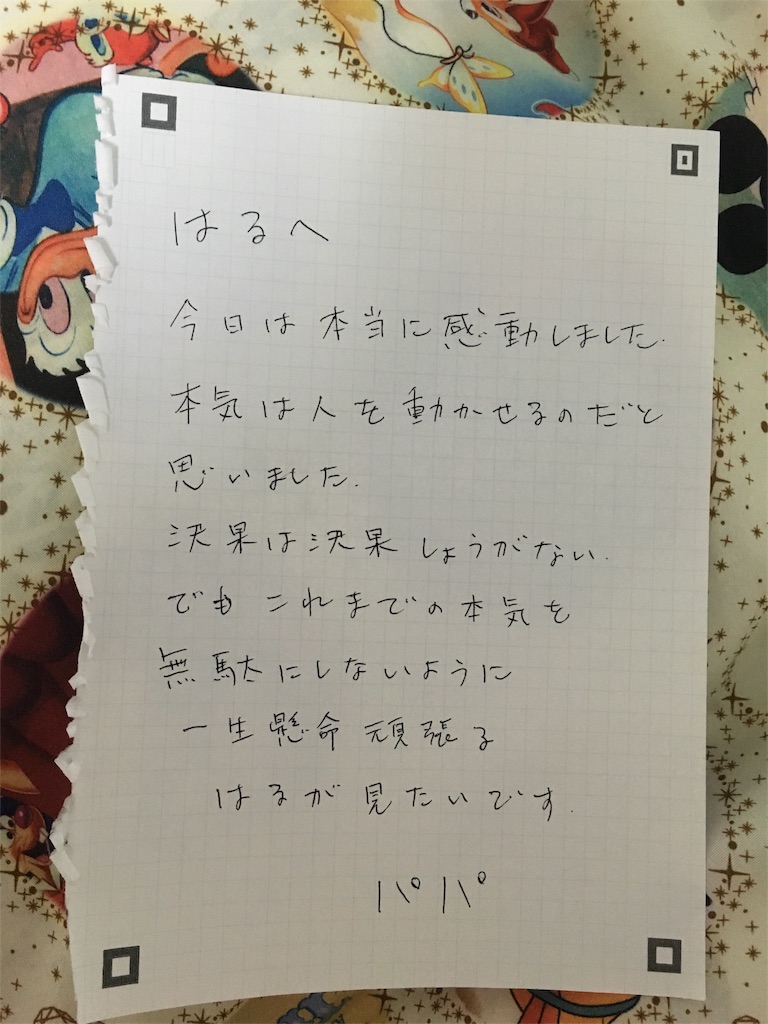 はるへ
今日は本当に感動しました.
本気は人を動かせるのだと
思いました.
決果は決果しょうがない.
でもこれまでの本気を
無駄にしないように
一生懸命頑張る
はるが見たいです.
パパ